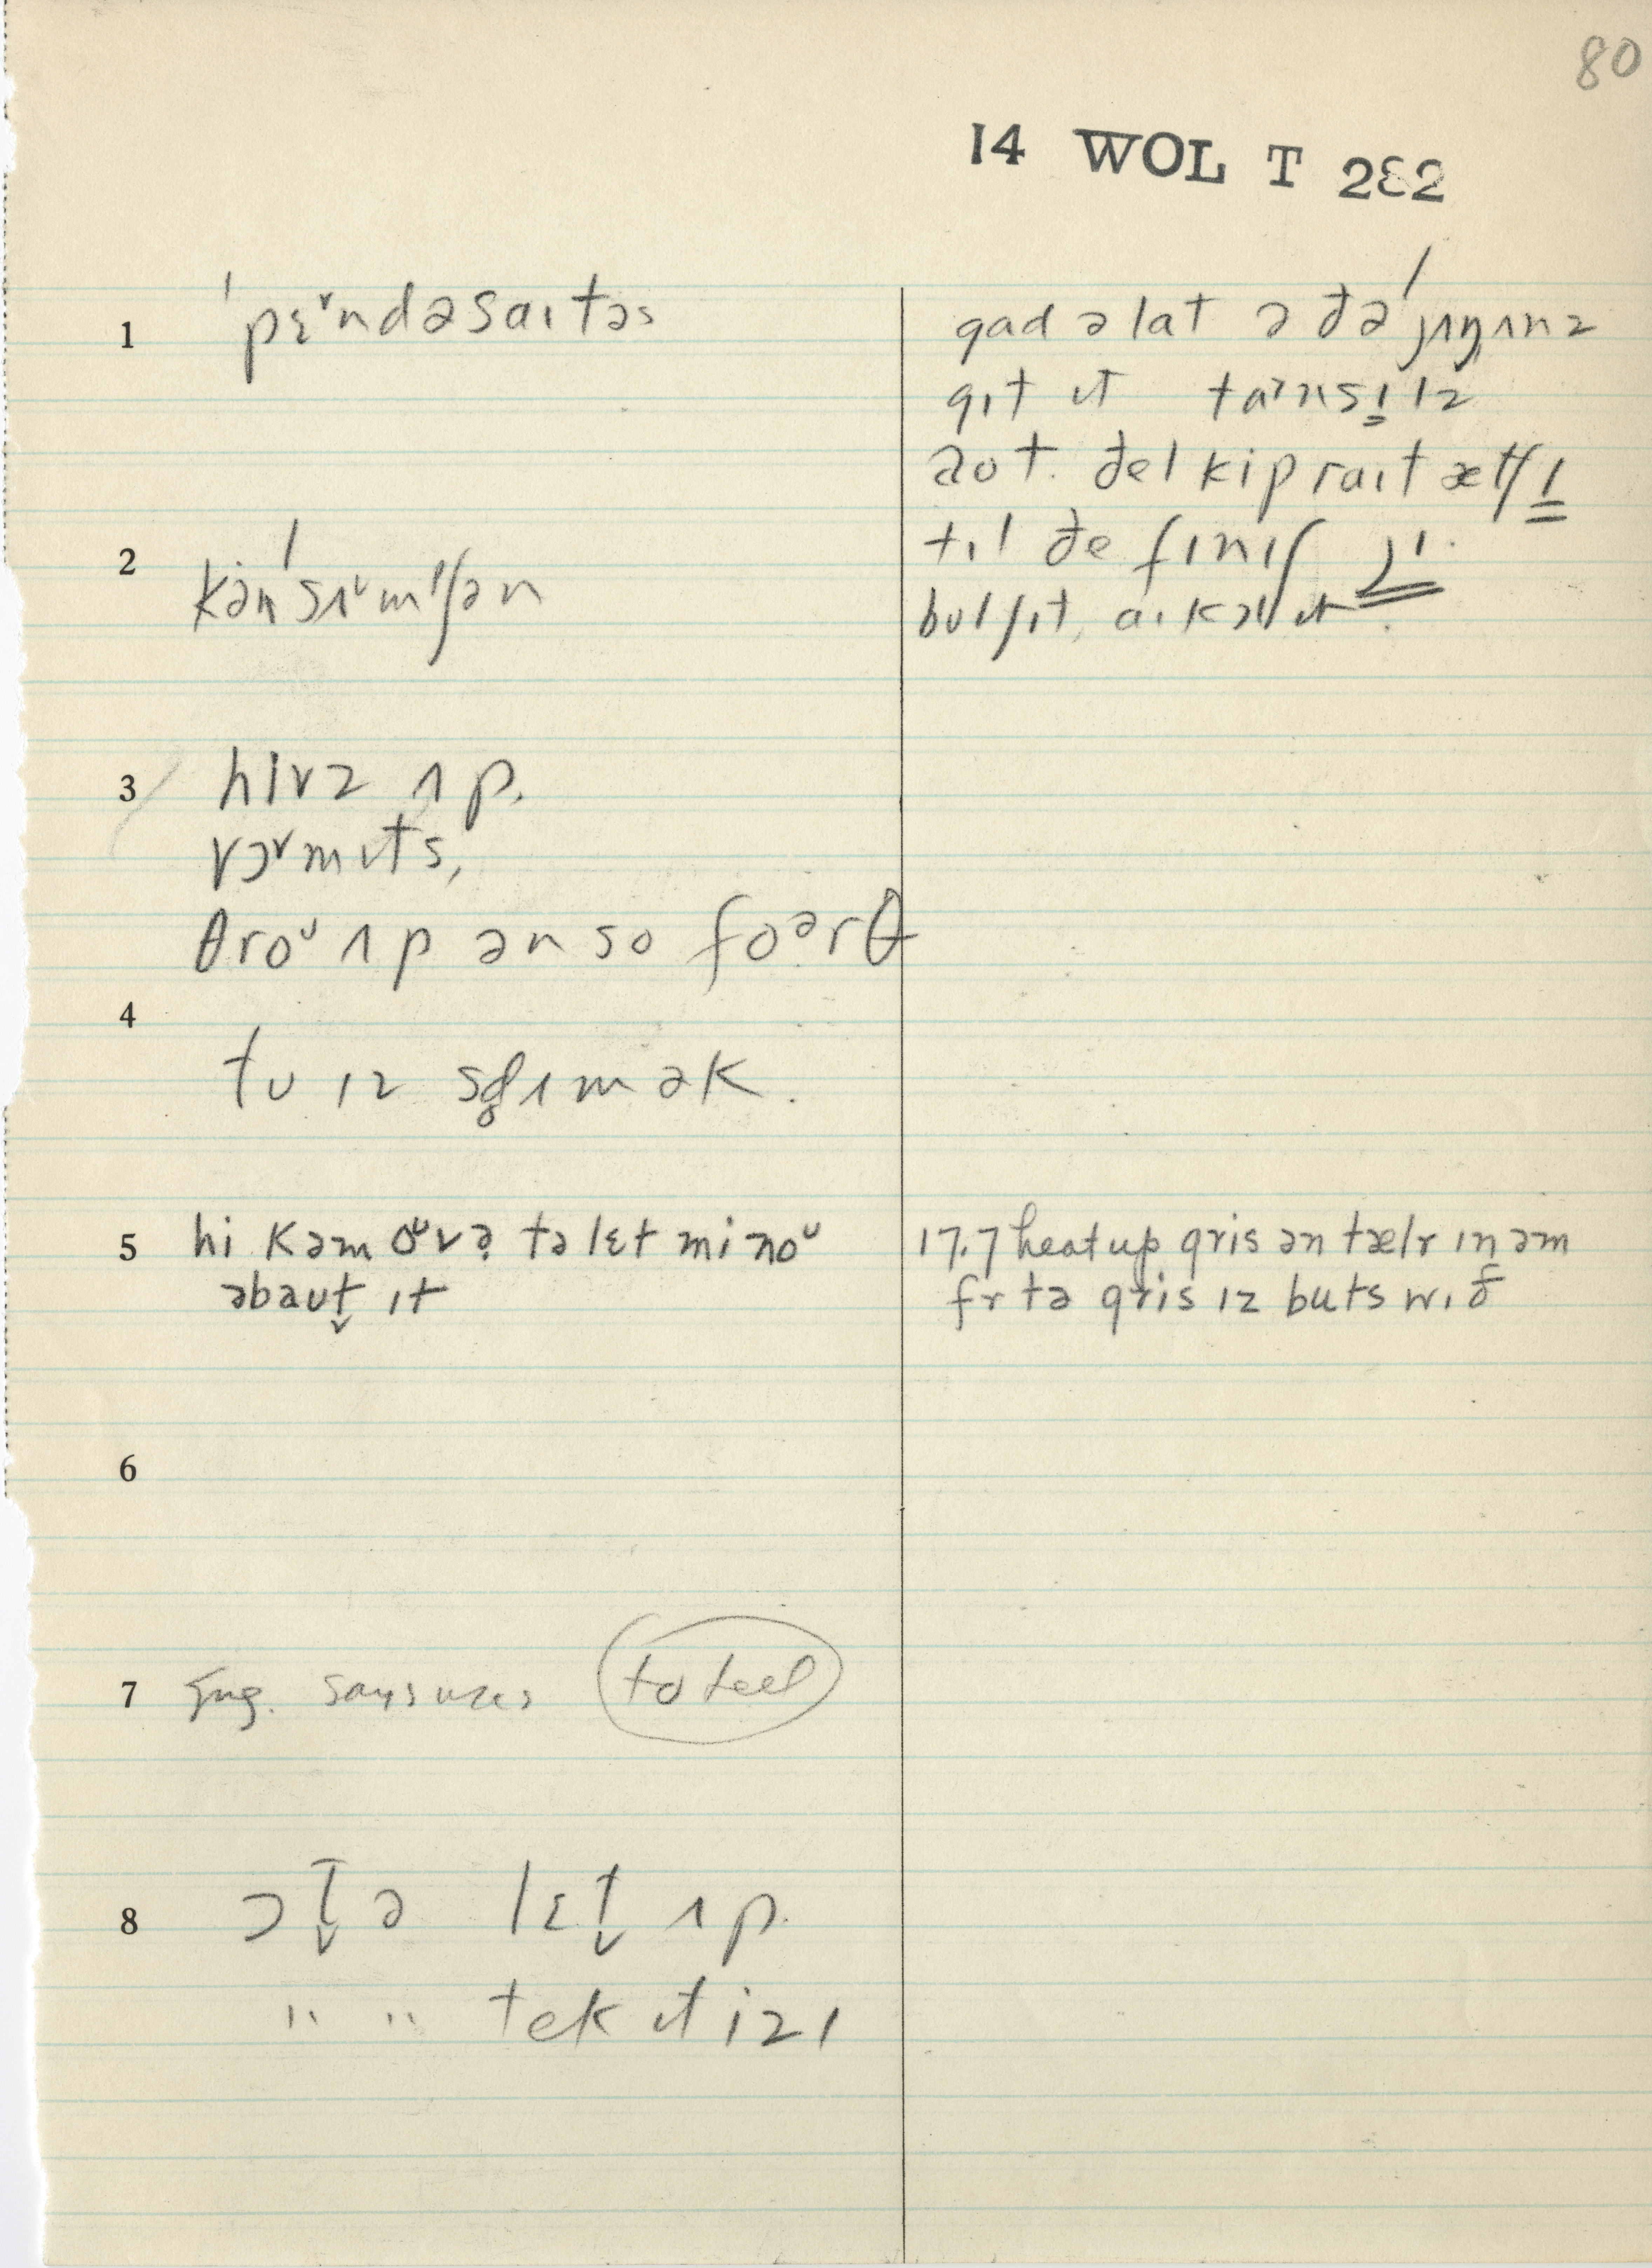 80
14 WOL T 282
1 ˈpɛᵛndəsaɪtəs
2 kənˈsɪᵛmʃən
3 hɪvz ʌp.
vɔᵛmɪts,
θroᵁ ʌp ən so foᵊrθ
4
tu ɪz sɡ̥ɪmək.
5 hi kəm oᵁvə tə lɛt mi noᵁ
əbaut̬ ɪt
6
7 Eng. says uses to teel
8 ɔt̬ə lɛt̬ ʌp.
" " tek ɪt izɪ
gad ə lat ə ðə
gɪt ɪt
aot. ðel kip raɪt æt
tɪl ðe fɪnɪʃ
bulʃɪt, aɪ kɔl ɪt.
17.7 heat up gris ən tælr ɪn əm
fr tə gris ɪz buts wɪð